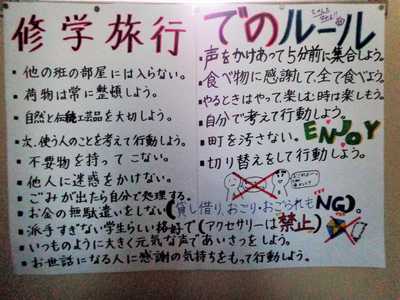 修学旅行でのルール
・他の班の部屋には入らない。
・荷物は常に整頓しよう。
・自然と伝統工芸品を大切しよう。
・次、使う人のことを考えて行動しよう。
・不要物を持ってこない。
・他人に迷惑をかけない。
・ごみが出たら自分で処理する。
・お金の無駄遣いをしない(貸し借り、おごり・おごられもNG)。
・派手すぎない学生らしい格好で(アクセサリーは禁止)
・いつものように大きく元気な声であいさつをしよう。
・お世話になる人に感謝の気持ちをもって行動しよう。
・声をかけあって5分前に集合しよう。
・食べ物に感謝して、全て食べよう。
・やるときはやって、楽しむ時は楽しもう。
・自分で考えて行動しよう。
・町を汚さない。
ENJOY
・切り替えをして行動しよう。